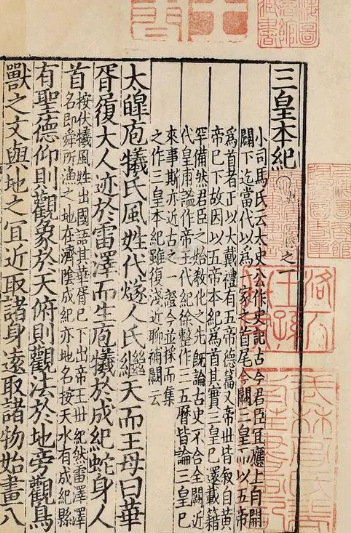 三皇本紀
小司馬氏云太史公作史記古今君臣宜應上自開
闢下迄當代以為一家之首尾今闕三皇而以五帝
為首者正以大戴禮有五帝德篇又帝世皆敘自黃
帝已下故因以五帝本紀為首其實三皇已還載籍
罕備然君臣之始教化之先既論古史不合全闕近
代皇甫謐作帝王代紀徐整作三五曆皆論三皇已
來事斯亦近古之一證今並採而集
之作三皇本紀雖復淺近聊補闕云
大皥庖犧氏風姓代燧人氏繼天而王母曰華
胥履大人迹於雷澤而生庖犧於成紀蛇身人
首按伏犧風姓出國語其華胥已下出帝王世紀然雷澤澤
名即舜所漁之地在濟陰成紀亦地名按天水有成紀縣
有聖德仰則觀象於天俯則觀法於地旁觀鳥
獸之文與地之宜近取諸身遠取諸物始畫八